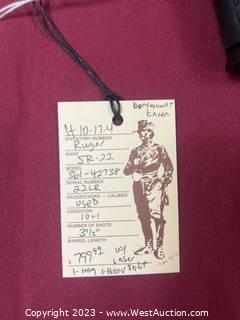 consignment
Karen
H 10-17.4
INVENTORY NUMBER
Ruger
MAKE
SR-22
MODEL
361-42738
SERIAL NUMBER
22LR
GAUGE/CHOKE - CALIBER
used
CONDITION
10+1
NUMBER OF SHOTS
3½"
BARREL LENGTH
$799.99 w/
Laser
1-mag
Copyright 2023 - www.WestAuction.com